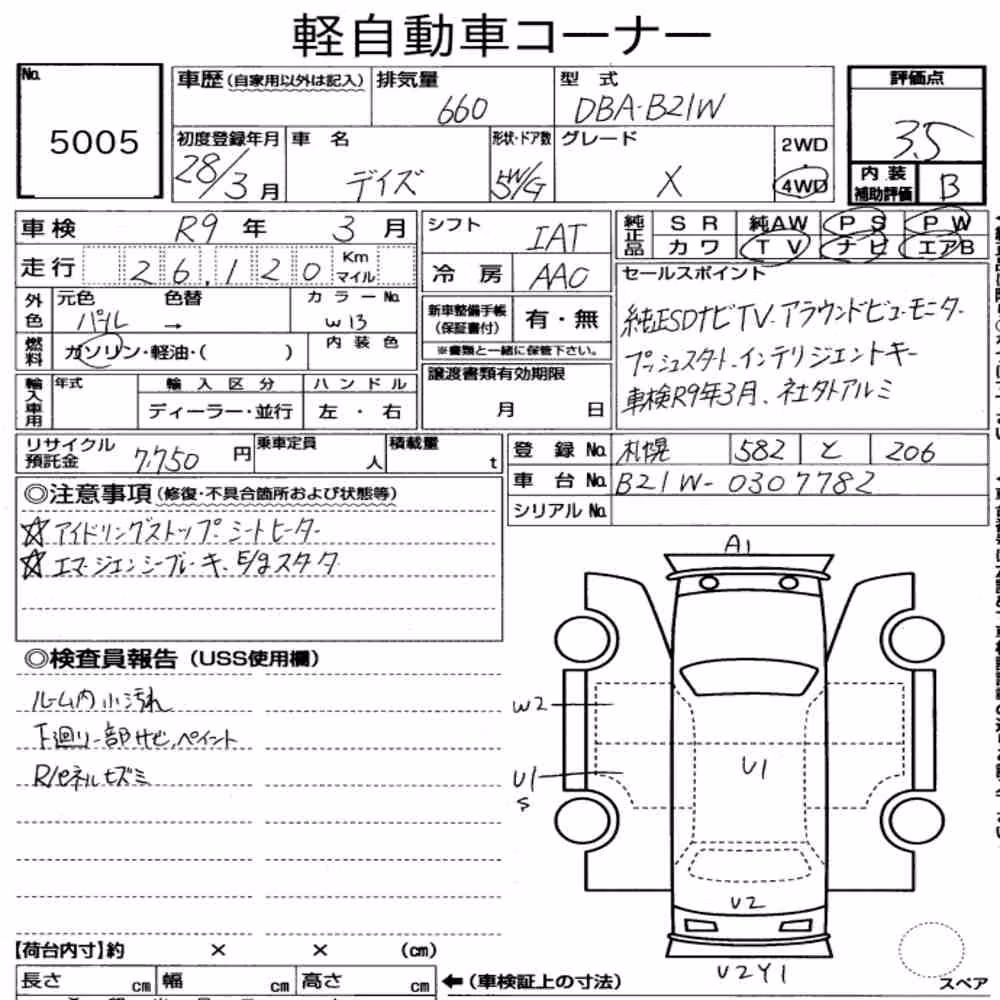 軽自動車コーナー
No. 5005
車歴(自家用以外は記入) 排気量 660 型式 DBA-B21W 評価点 3.5
初度登録年月 28/3月 車名 デイズ 形状・ドア数 5W/G グレード X 2WD 4WD
内装補助評価 B
車検 R9年 3月 シフト IAT 純正品 SR 純AW PS PW
カワ TV ナビ エアB
走行 26,120 Km マイル 冷房 AAC
セールスポイント
純正SDナビTV.アラウンドビューモニター
プッシュスタート.インテリジェントキー
車検R9年3月、社外アルミ
外色 元色 パール → 色替 カラーNo. W13
新車整備手帳(保証書付) 有・無
※書類と一緒に保管下さい。
燃料 ガソリン・軽油・( ) 内装色
輸入車用 年式 輸入区分 ハンドル
ディーラー・並行 左・右
譲渡書類有効期限
月 日
リサイクル預託金 7,750円 乗車定員 人 積載量 t
登録No. 札幌 582 と 206
車台No. B21W-0307782
シリアルNo.
◎注意事項(修復・不具合箇所および状態等)
☆アイドリングストップ.シートヒーター
☆エマージェンシーブレーキ.E/gスタータ
◎検査員報告(USS使用欄)
ルーム内小汚れ
下廻り一部サビ,ペイント
Rパネルヒズミ
A1
W2
U1
S
U1
U2
U2Y1
スペア
【荷台内寸】約 × × (cm)
長さ cm 幅 cm 高さ cm ←(車検証上の寸法)